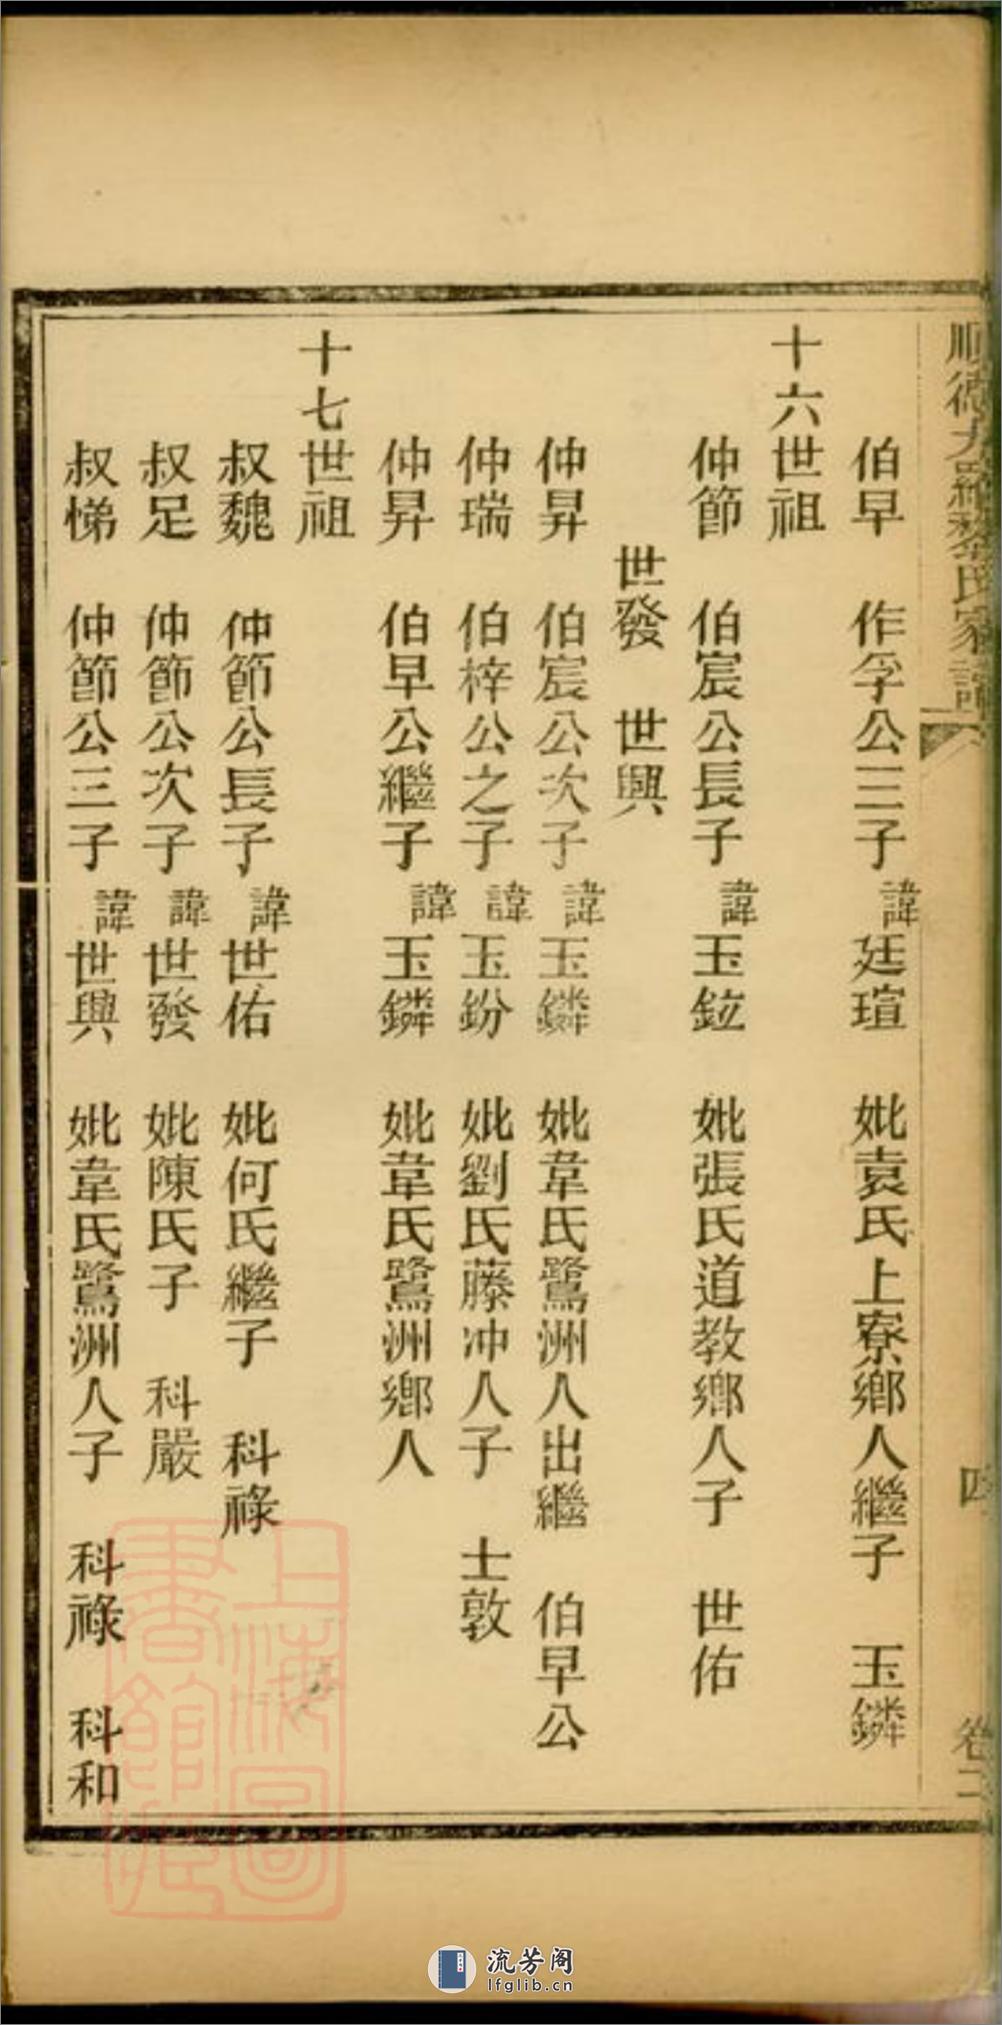 順德大羅黎氏家譜 四 卷二
伯早 作孚公三子 諱廷瑄 妣袁氏上寮鄉人繼子 玉鏻
十六世祖
仲節 伯宸公長子 諱玉鉝 妣張氏道教鄉人子 世佑
世發 世興
仲昇 伯宸公次子 諱玉鏻 妣韋氏鷺洲人出繼 伯早公
仲瑞 伯梓公之子 諱玉鈖 妣劉氏藤冲人子 士敦
仲昇 伯早公繼子 諱玉鏻 妣韋氏鷺洲鄉人
十七世祖
叔魏 仲節公長子 諱世佑 妣何氏繼子 科祿
叔足 仲節公次子 諱世發 妣陳氏子 科嚴
叔悌 仲節公三子 諱世興 妣韋氏鷺洲人子 科祿 科和
上海圖書館藏
流芳阁
lfglib.cn